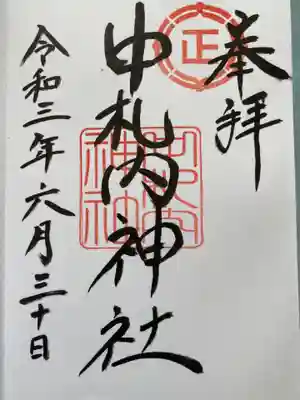 奉拝
正
中札内神社
令和三年六月三十日